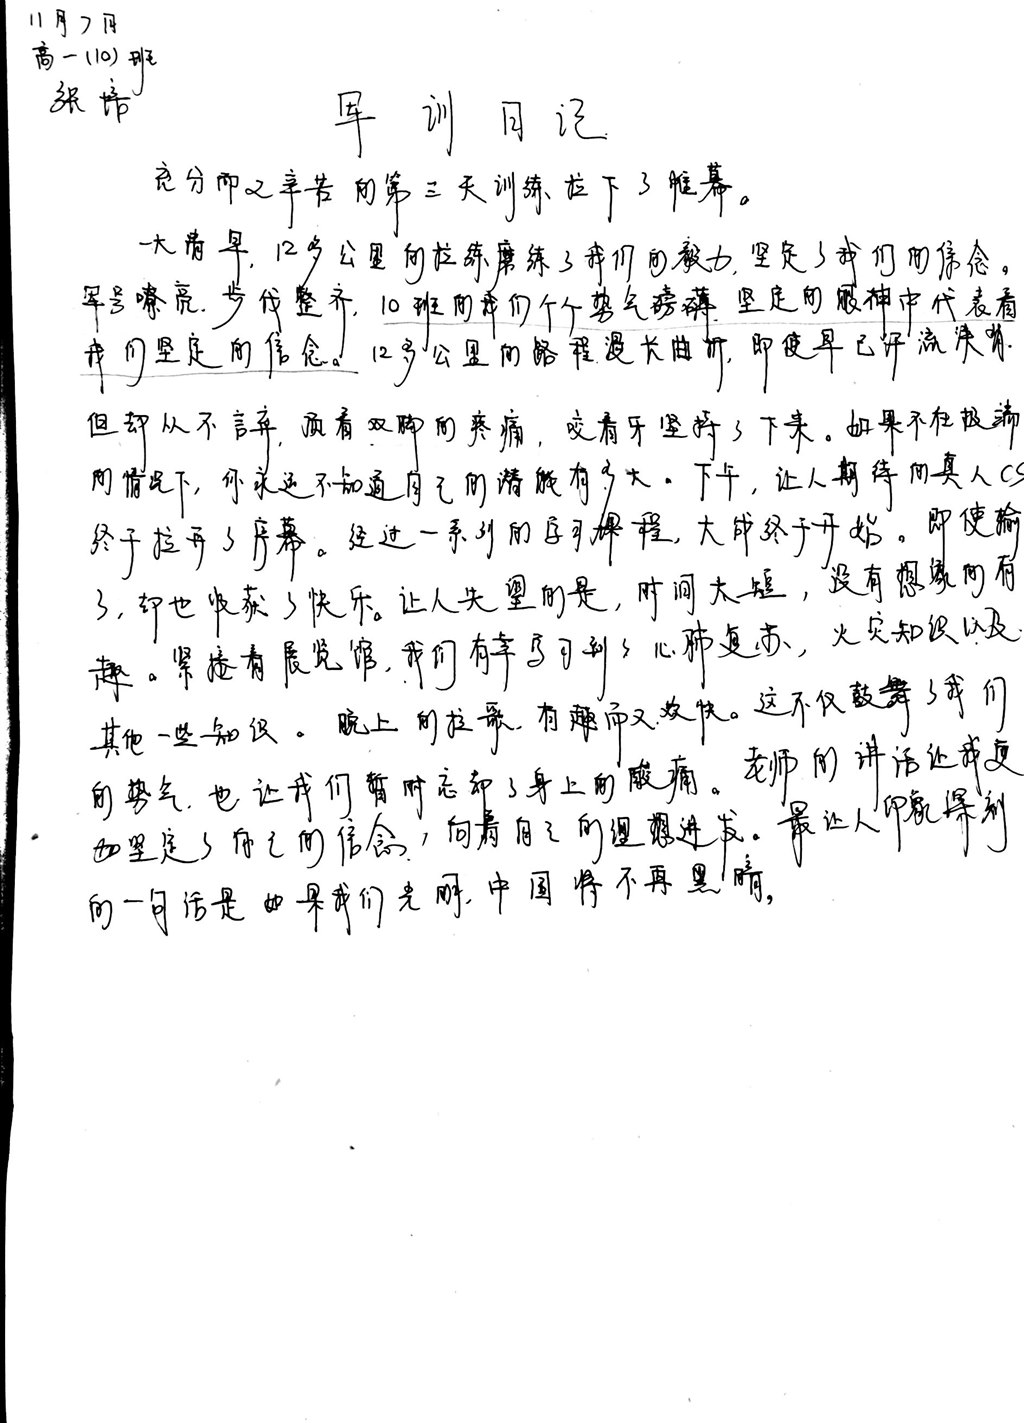 11月7日
高一(10)班
张
军训日记
充分而又辛苦的第三天训练拉下了帷幕。
一大清早,12多公里的拉练磨练了我们的毅力,坚定了我们的信念。
军号嘹亮,步伐整齐,10班的我们个个势气磅礴,坚定的眼神中代表着
我们坚定的信念。12多公里的路程漫长曲折,即使早已汗流浃背
但却从不言弃,顶着双脚的疼痛,咬着牙坚持了下来。如果不在极端
的情况下,你永远不知道自己的潜能有多大。下午,让人期待的真人CS
终于拉开了序幕。经过一系列的学习课程,大战终于开始。即使输
了,却也收获了快乐。让人失望的是,时间太短,没有想象的有
趣。紧接着展览馆,我们有幸学习到了心肺复苏、火灾知识以及
其他一些知识。晚上的拉歌,有趣而又欢快。这不仅鼓舞了我们
的势气,也让我们暂时忘却了身上的酸痛。老师的讲话让我更
加坚定了自己的信念,向着自己的理想进发。最让人印象深刻
的一句话是如果我们光明,中国将不再黑暗。